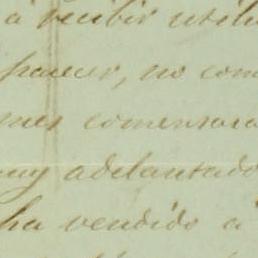 a recibir utili
parecer, no com
mes comenzara
uy adelantado
ha vendido a